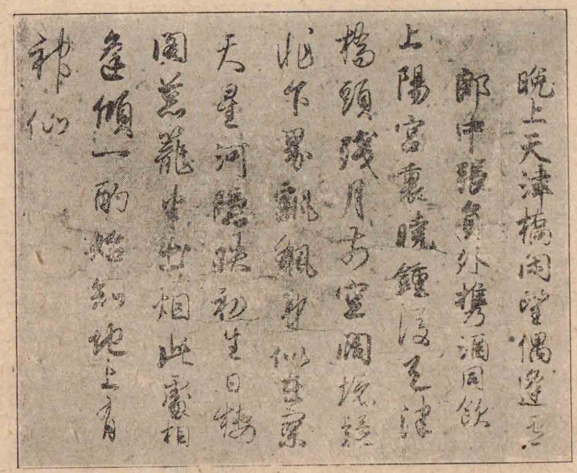 晚上天津橋閑望偶逢盧
郎中張員外携酒同飲
上陽宮裏曉鍾後天津
橋頭殘月前空闊境疑
非下界飄飄身似在寥
天星河隱映初生日樓
閣葱蘢半出烟此處相
逢傾一酌始知地上有
神仙